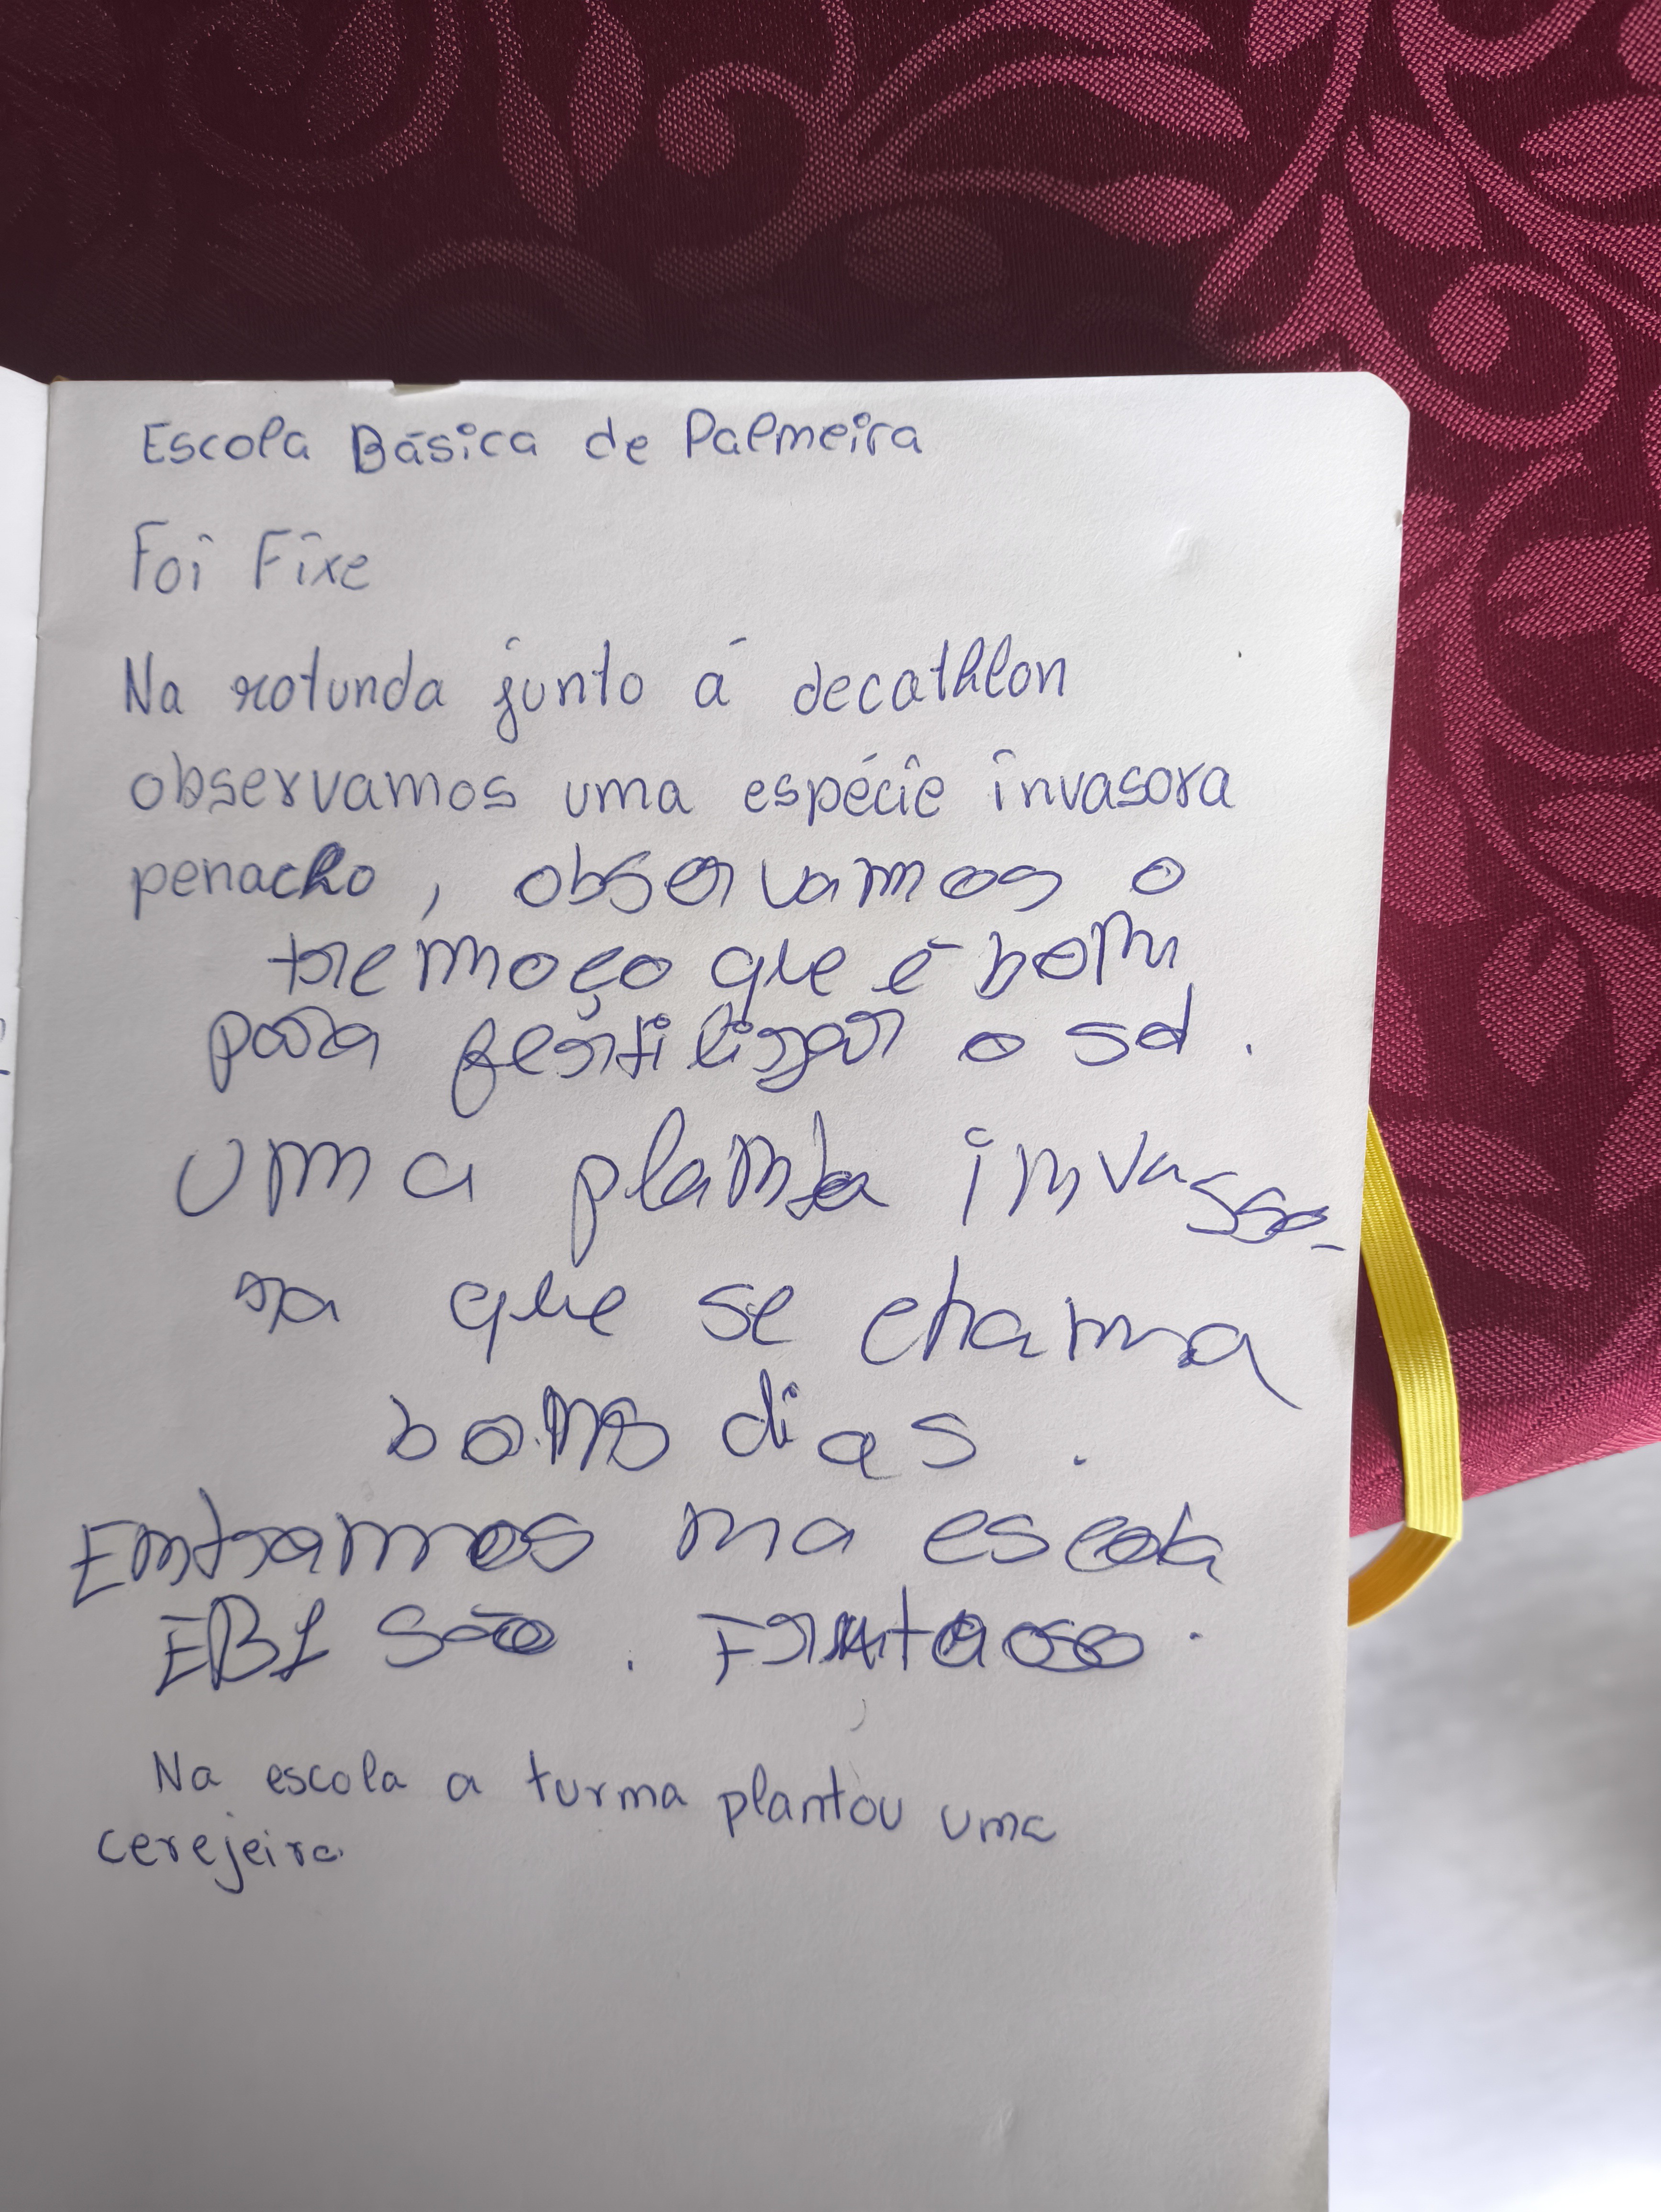 Escola Básica de Palmeira
Foi Fixe
Na rotunda junto á decathlon
observamos uma espécie invasora
penacho, observamos o
tremoço que é bom
para fertilizar o sol.
uma planta invasso-
ra que se chama
bons dias.
Entramos na escola
EB1 São. Frutuoso.
Na escola a turma plantou uma
cerejeira